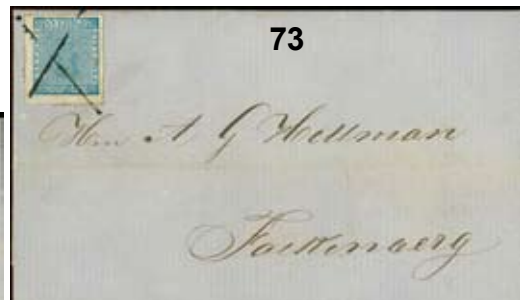 73
A G Hellman
Falkenberg